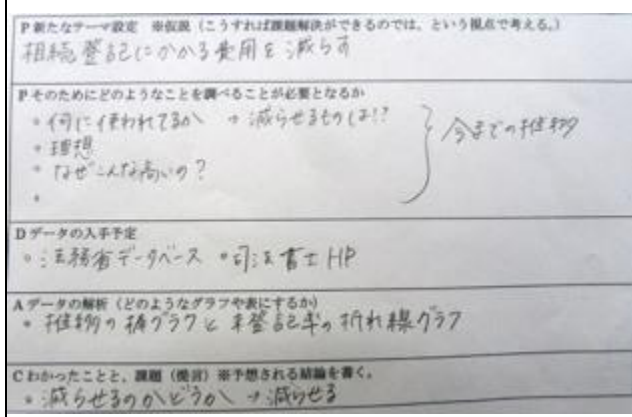 P 新たなテーマ設定 ※仮説（こうすれば課題解決ができるのでは、という視点で考える。）
相続登記にかかる費用を減らす
P そのためにどのようなことを調べることが必要となるか
・何に使われてるか → 減らせるものは!?
・理想
・なぜこんな高いの？
今までの推移
・
D データの入手予定
・法務省データベース ・司法書士HP
A データの解析（どのようなグラフや表にするか）
・推移の棒グラフと未登記率の折れ線グラフ
C わかったことと、課題（提言）※予想される結論を書く。
・減らせるのかどうか → 減らせる